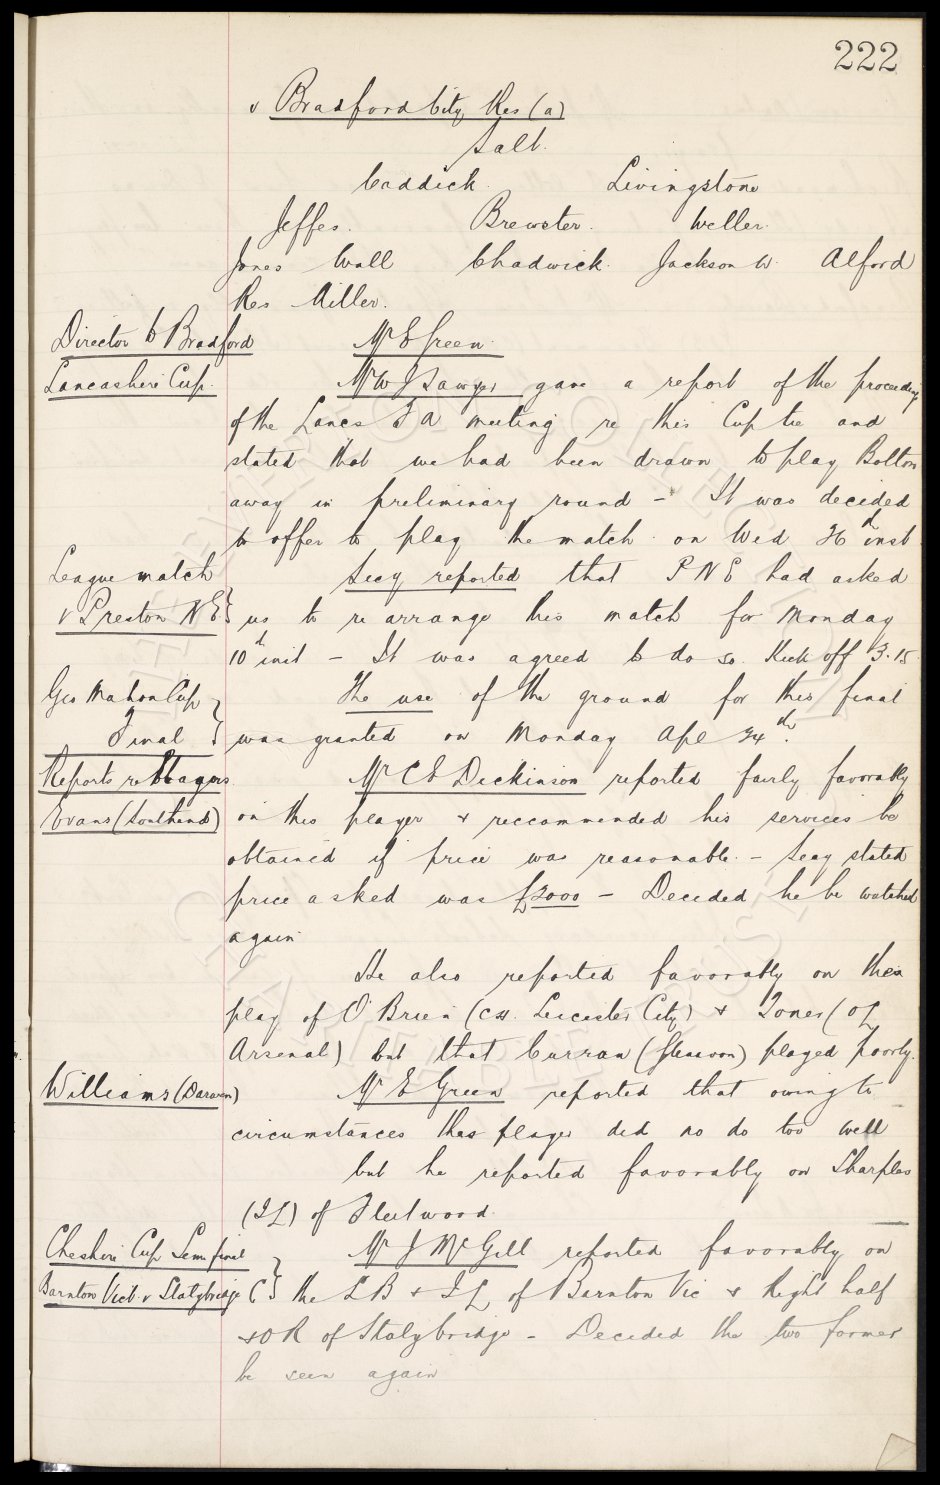 222
v Bradford City Res (a)
Salt.
Caddick. Livingstone
Jeffes. Brewster. Weller.
Jones Wall Chadwick. Jackson W. Alford
Res Miller.
Director to Bradford Mr E Green.
Lancashire Cup. Mr W J Sawyer gave a report of the proceedings
of the Lancs F A meeting re this Cup tie and
stated that we had been drawn to play Bolton
away in preliminary round - It was decided
to offer to play the match on Wed 26th inst.
League match Secy reported that P N E had asked
v Preston N E } us to re arrange this match for Monday
10th inst - It was agreed to do so. Kick off 3.15.
Geo Mahon Cup The use of the ground for this final
Final } was granted on Monday Apl 24th.
Reports re Players Mr C E Dickinson reported fairly favorably
Evans (Southend) on this player & reccommended his services be
obtained if price was reasonable. - Secy stated
price asked was £2000 - Decided he be watched
again
He also reported favorably on the
play of O'Brien (C H. Leicester City) & Jones (O L
Arsenal) but that Curran ( ) played poorly.
Williams (Darwen) Mr E Green reported that owing to
circumstances this player did no do too well
but he reported favorably on Sharples
(I L) of Fleetwood.
Cheshire Cup Semi final Mr J McGill reported favorably on
Barnton Vict. v Stalybridge C } the L B & I L of Barnton Vic & Right half
& O R of Stalybridge - Decided the two former
be seen again